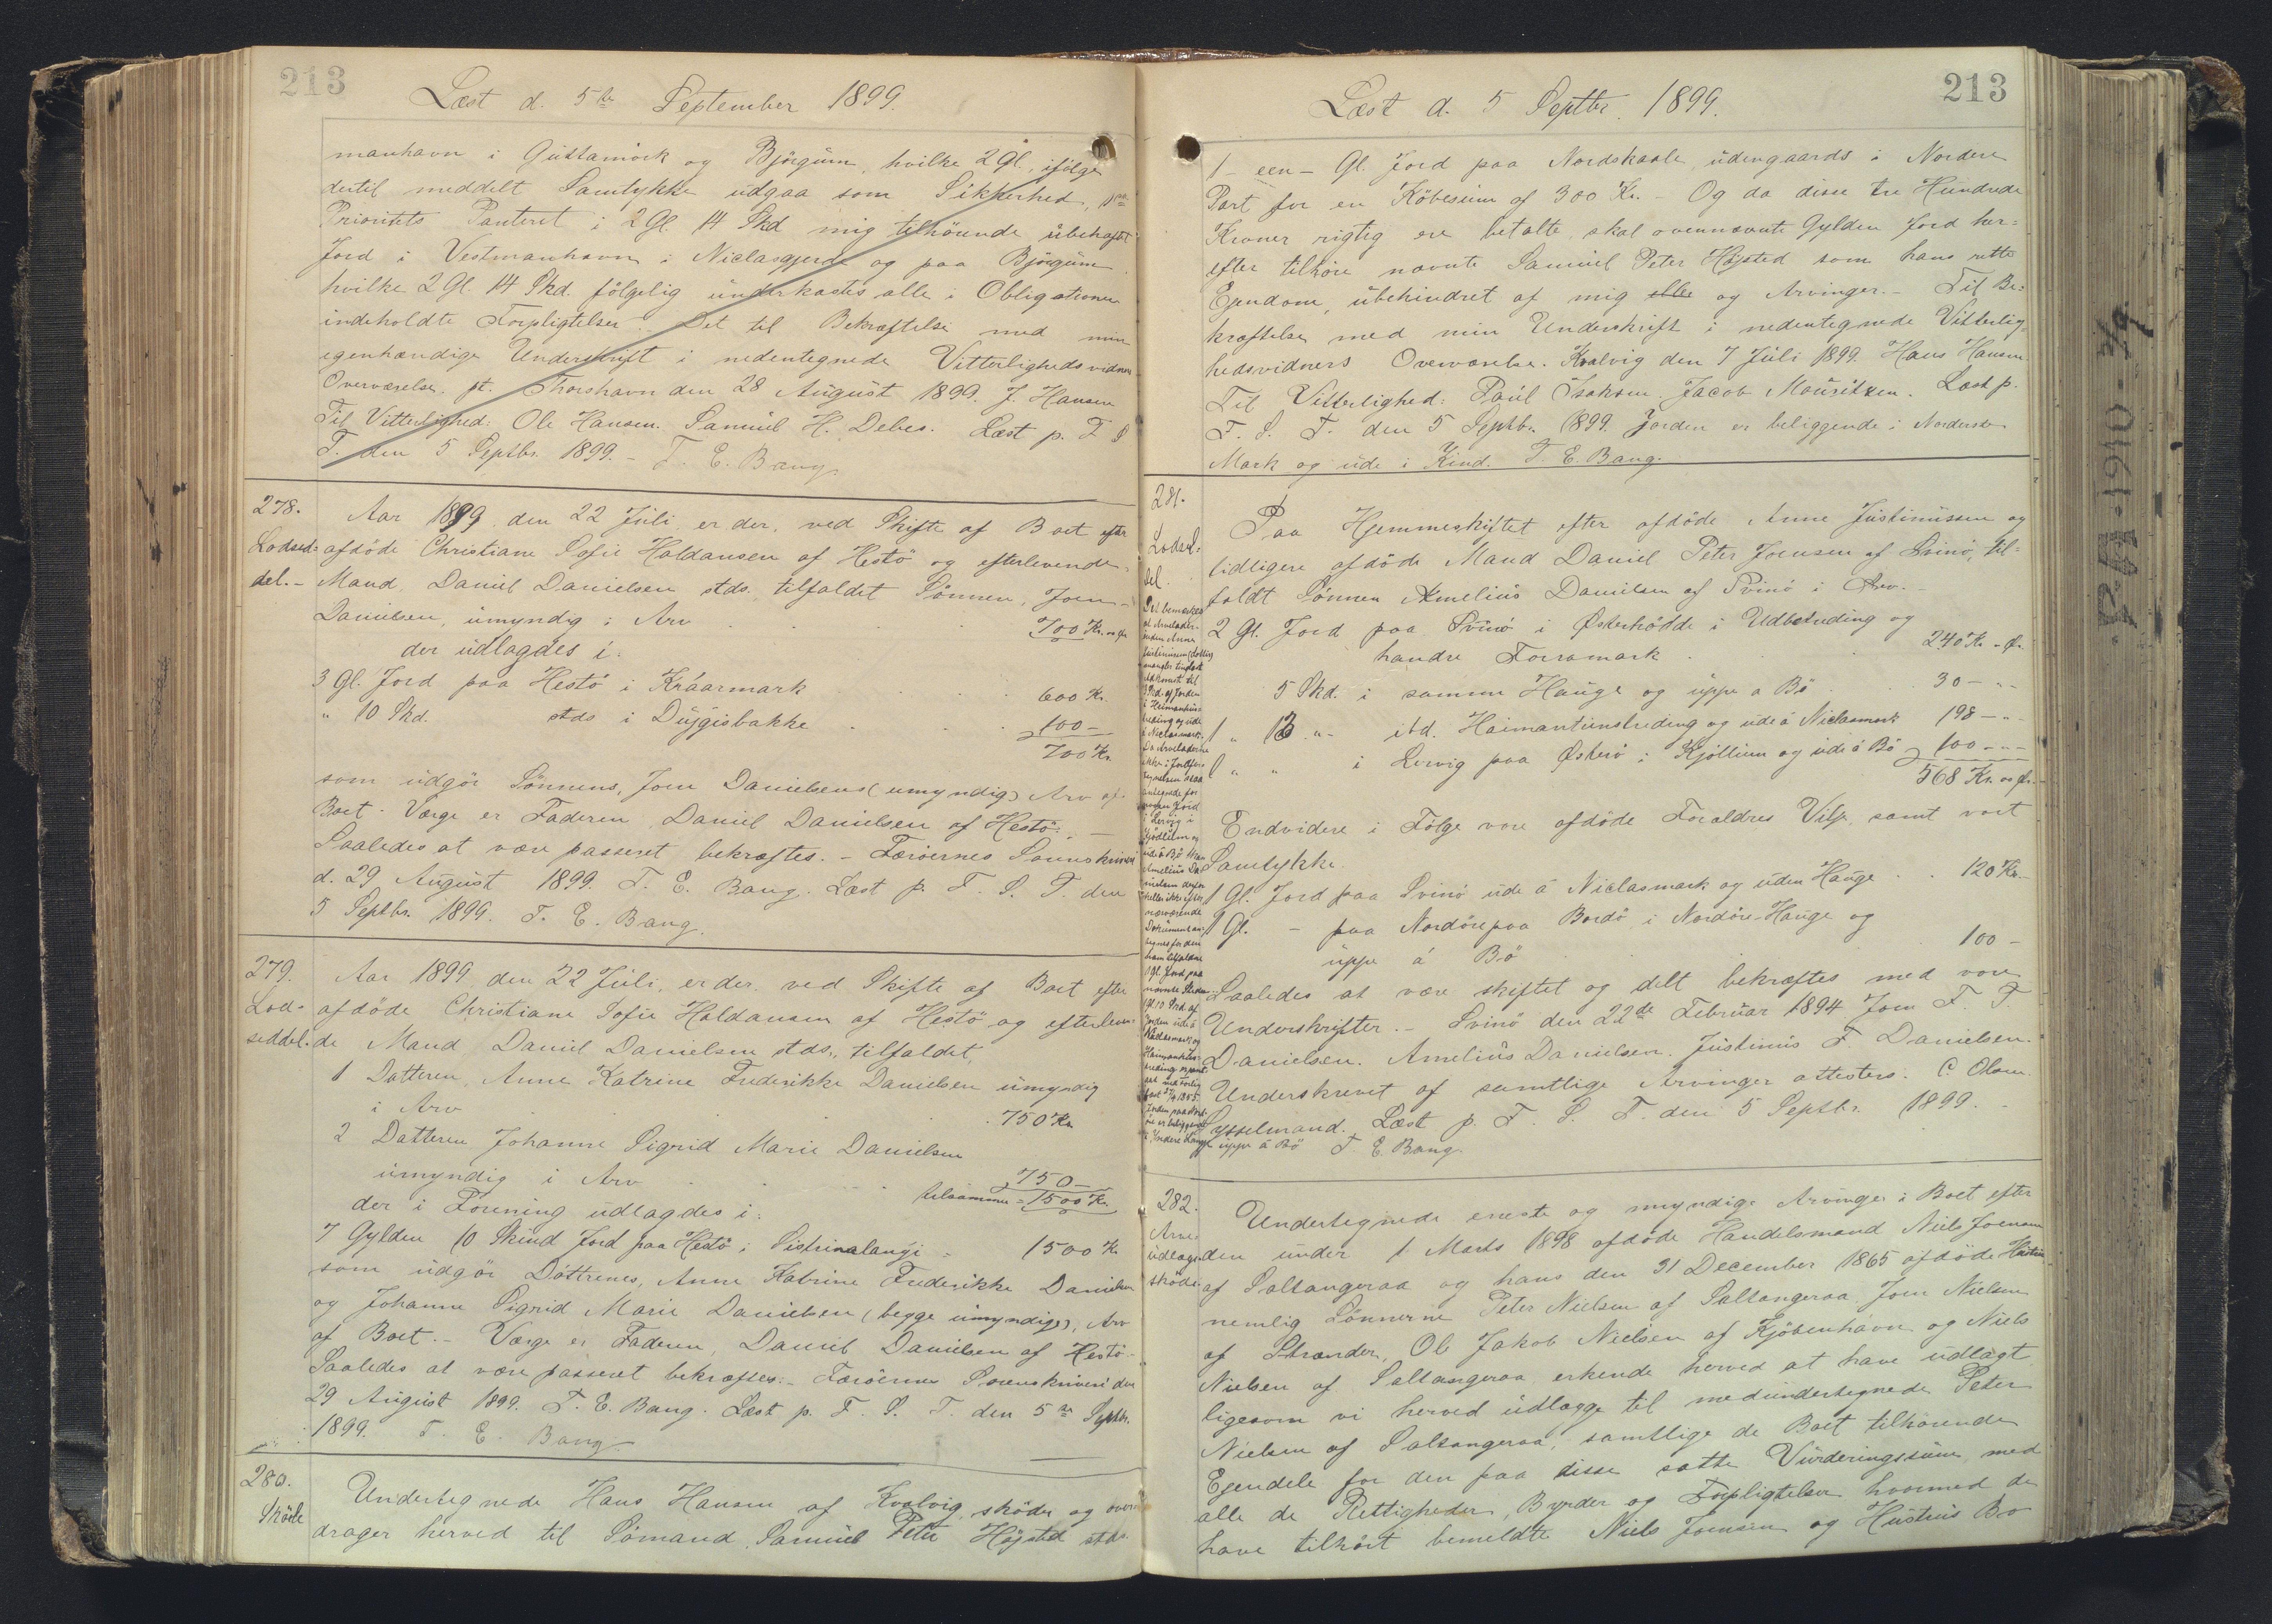 213
Læst d. 5te September 1899.
manhavn i Gustamörk og Bjørgum, hvilke 2 Gl., ifølge
dertil meddelt Samtykke udgaa som Sikkerhed,
Prioritets Panteret i 2 Gl. 14 Skd mig tilhörende übehæftet
Jord i Vestmanhavn i Niclasgjerde og paa Bjørgum
hvilke 2 Gl. 14 Skd. fölgelig underkastes alle i Obligationen
indeholdte Forpligtelser. Det til Bekræftelse med min
egenhændige Underskrift i nedentegnede Vitterlighedsvidners
Overværelse. pt. Thorshavn den 28 August 1899. J. Hansen
Til Vitterlighed: Ole Hansen. Samuel H. Debes. Læst p. F S
T. den 5 Septbr. 1899. - T. E. Bang.
278.
Lodsed=
del. -
Aar 1899 den 22 Juli er der, ved Skifte af Boet efter
afdöde Christiane Sofie Haldansen af Hestö og efterlevende
Mand, Daniel Danielsen stds. tilfaldet Sönnen, Joen
Danielsen, umyndig i Arv 700 Kr. " Ør
der udlagdes i:
3 Gl. Jord paa Hestö i Kráarmark 600 Kr.
" 10 Skd. stds i Dujgisbakke 100 -
700 Kr.
som udgör Sönnens, Joen Danielsens (umyndig) Arv af
Boet. Værge er Faderen, Daniel Danielsen af Hestö. -
Saaledes at være passeret bekræftes. - Færöernes Sorenskriveri
d. 29 August 1899. T. E. Bang. Læst p. F. S. T. den
5 Septbr. 1899. T. E. Bang.
279.
Lod-
seddel.
Aar 1899 den 22 Juli, er der, ved Skifte af Boet efter
afdöde Christiane Sofie Haldansen af Hestö og efterleven-
de Mand Daniel Danielsen stds., tilfaldet,
1 Datteren Anne Katrine Frederikke Danielsen umyndig
i Arv 750 Kr
2 Datteren Johanne Sigrid Marie Danielsen
umyndig i Arv 750 -
tilsammen = 1500 Kr.
der i Forening udlagdes i:
7 Gylden 10 Skind Jord paa Hestö i Sistrinalangi = 1500 Kr.
som udgör Döttrenes, Anne Katrine Frederikke Danielsen
og Johanne Sigrid Marie Danielsen (begge umyndige), Arv
af Boet. - Værge er Faderen, Daniel Danielsen af Hestö -
Saaledes at være passeret bekræftes. - Færöernes Sorenskriveri den
29 August 1899. T. E. Bang. Læst p. F. S. T. den 5te Septbr.
1899. T. E. Bang
280.
Sköde
Undertegnede Hans Hansen af Kvalvig, sköder og over-
drager herved til Sömand, Samuel Peter Højsted stds.
213
Læst d. 5 Septbr. 1899.
1 - een - Gl. Jord paa Nordskaale, udengaards i Nordere
Part for en Köbesum af 300 Kr. - Og da disse tre Hundrede
Kroner rigtig ere betalte, skal ovennævnte Gylden Jord her=
efter tilhöre nævnte Samuel Peter Højsted som hans rette
Ejendom, übehindret af mig elle og Arvinger. - Til Be=
kræftelse med min Underskrift i nedentegnede Vitterlig-
hedsvidners Overværelse. Kvalvig den 7 Juli 1899. Hans Hansen
Til Vitterlighed: Paul Isaksen. Jacob Mauritzen. Læst p.
F. S. T. den 5 Septbr. 1899. Jorden er beliggende i Norderste
Mark og ude i Kind. T. E. Bang.
281.
Lodsed=
del.
Paa Hjemmeskiftet efter afdöde Anne Justinussen og
tidligere afdöde Mand Daniel Peter Joensen af Svinö, til=
faldt Sönnen Amelius Danielsen af Svinö i Arv. -
2 Gl. Jord paa Svinö i Østerhødde i Udbetreding og
handre Forramark 240 Kr. - Ør.
5 Skd. i samme Hauge og uppe a Bö 30 - "
1 " 13 " - itd. Haimantunstreding og ude á Niclasmark 198 - " -
1 " " i Lervig paa Østerö i Kjöllium og ude á Bö 100 - " -
568 Kr. " Ør. -
Endvidere i Fölge vore afdöde Forældres Vilje, samt vort
Samtykke
1 Gl. Jord paa Svinö ude á Niclasmark og uden Hauge 120 Kr. -
1 Gl. - paa Nordöre paa Bordö i Nordöre-Hauge og
uppe á Bö 100 -
Saaledes at være skiftet og delt bekræftes med vore
Underskrifter. - Svinö den 22de Februar 1894 Joen F. F.
Danielsen. Amelius Danielsen. Justinus F. Danielsen.
Underskrevet af samtlige Arvinger attesters. C. Olsen
Sysselmand. Læst p. F. S. T. den 5 Septbr. 1899. -
T. E. Bang.
Det bemærkes
at Arvelader-
inden Anne
Justinussen
mangler tinglæst
Adkomst til
Skd. af Jorden
i Heimantuns-
treding og ude
á Niclasmark.
uppe á Bö
282.
Arve
udlægs
sköde.
Undertegnede eneste og myndige Arvinger i Boet efter
den under 1 Marts 1898 afdöde Handelsmand Niels Joensen
af Saltangeraa og hans den 31 December 1865 afdöde Hustru
nemlig Sönnerne Peter Nielsen af Saltangeraa, Joen Nielsen
af Strænder, Ole Jakob Nielsen af Kjöbenhavn og Niels
Nielsen af Saltangeraa erkende herved at have udlagt
ligesom vi herved udlægge til medundertegnede Peter
Nielsen af Saltangeraa, samtlige de Boet tilhörende
Ejendele for den paa disse satte Vurderingssum, med
alle de Rettigheder, Byrder og Forpligtelser hvormed de
have tilhört bemeldte Niels Joensen og Hustrus Bo